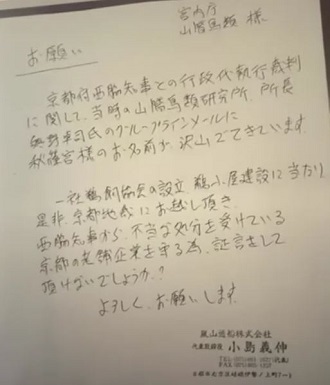 宮内庁
山階鳥類 様
お願い
京都府西脇知事との行政代執行裁判
に関して、当時の山階鳥類研究所 所長
奥野卓司氏のグループラインメールに
秋篠宮様のお名前が沢山でてきています。
一社鵜飼協会の設立、鵜小屋建設に当たり
是非、京都地裁にお越し頂き、
西脇知事から、不当な処分を受けている
京都の老舗企業を守る為、証言をして
頂けないでしょうか?
よろしく、お願いします。
嵐山通船株式会社
代表取締役 小島義伸